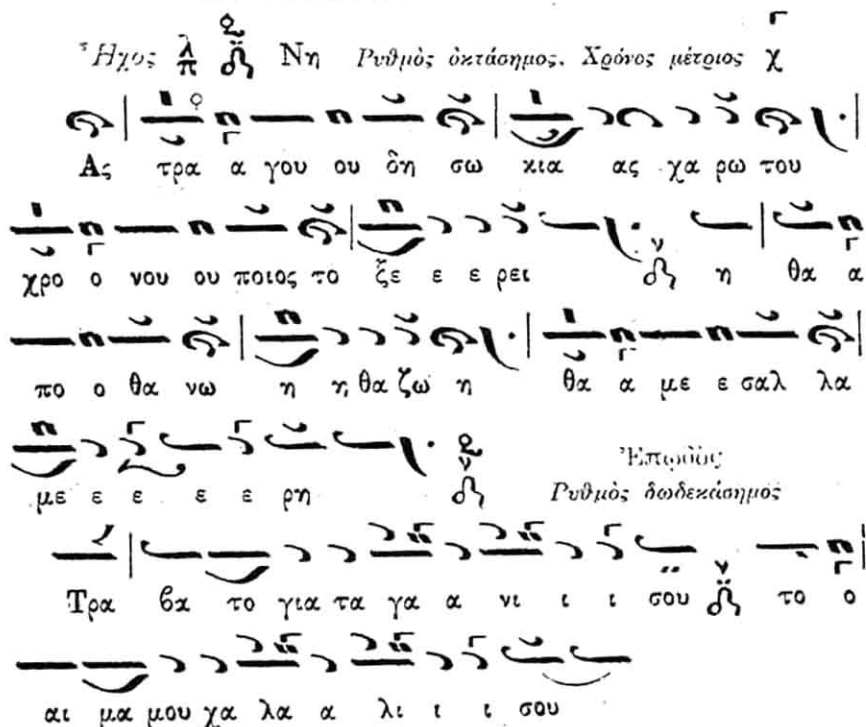 Ἦχος λ π Νη Ρυθμὸς ὀκτάσημος. Χρόνος μέτριος χ
Ας τρα α γου ου δη σω κια ας χα ρω του
χρο ο νου ου ποιος το ξε ε ε ρει η θα α
πο ο θα νω η η θα ζω η θα α με ε σαλ λα
με ε ε ε ε ρη Ἐπῳδὸς
Ρυθμὸς δωδεκάσημος
Τρα βα το για τα γα α νι ι ι σου το ο
αι μα μου χα λα α λι ι ι σου